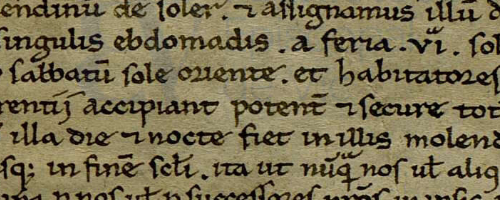 endinũ de soler. ⁊ assignamus illũ d
singulis ebdomadis. a feria .viͣ. sol
sabbatũ sole oriente. et habitatores
rentij accipiant potent̃ ⁊ secure tot
illa die ⁊ nocte fiet in illis molend
sq; in finẽ scl̃i. ita ut nũq̃ nos ul̃ aliq
nos ul̃ successores